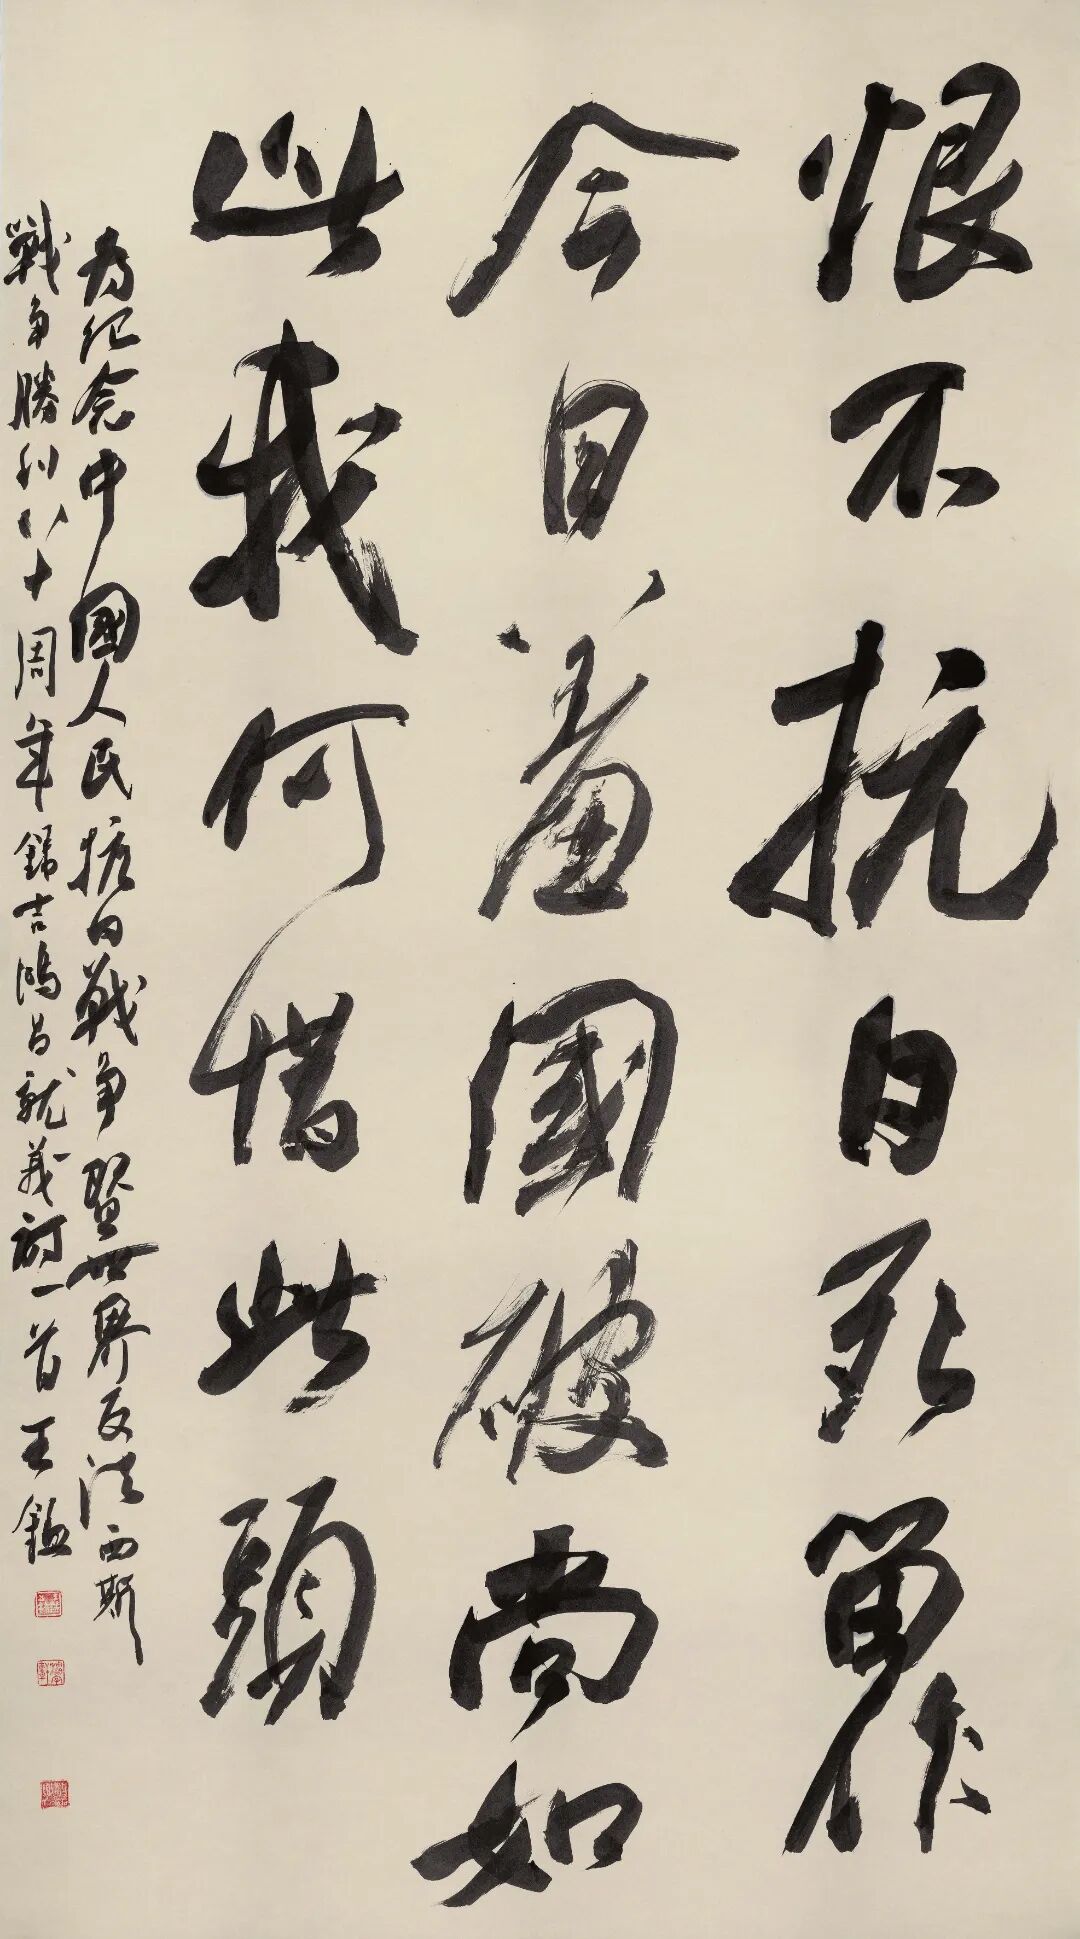 恨不抗日死留作
今日羞國破尚如
此我何惜此頭
为纪念中國人民抗日戰争暨世界反法西斯
戰争勝利八十周年錄吉鴻昌就義詩一首王鑑